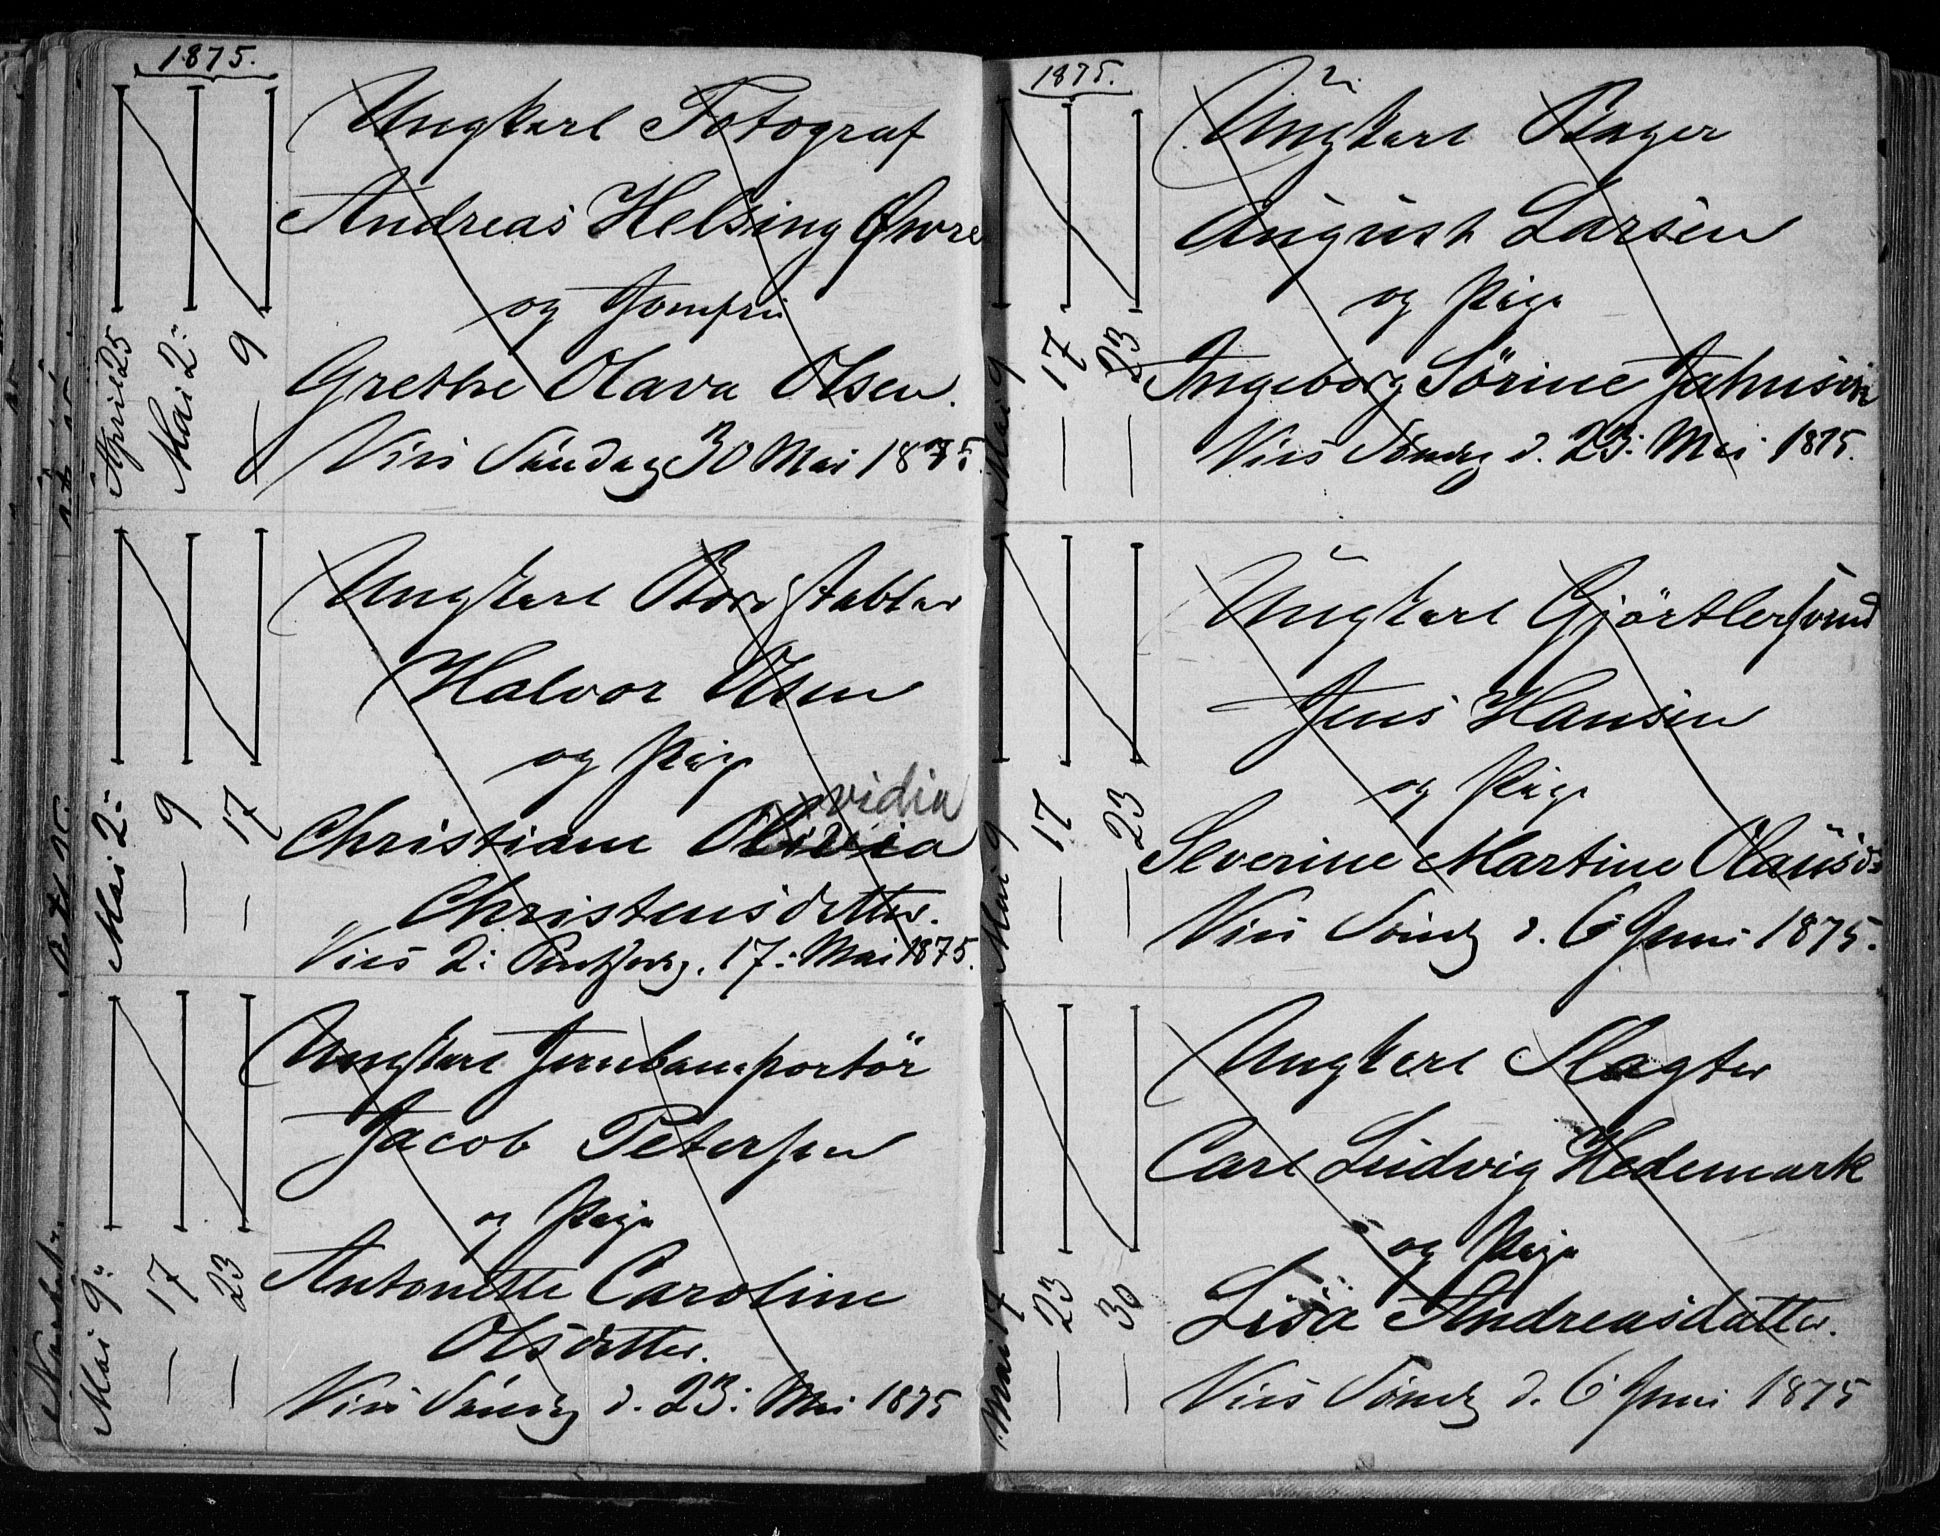 1875.
Ungkarl Fotograf
Andreas Helsing Øwre
og Jomfru
Grethe Olava Olsen.
Vies Søndag 30 Mai 1875.
April 25
Mai 2:
— 9
Ungkarl
Halvor Olsen
og Pige
vidia
Christiane Olivia
Christensdatter.
Vies 2: 17: Mai 1875.
Mai 2:
— 9
— 17
Ungkarl Jernbaneportör
Jacob Petersen
og Pige
Antonette Caroline
Olsdatter.
Vies Søndg d. 23: Mai 1875
Mai 9:
— 17
— 23
1875.
Ungkarl Bager
August Larsen
og Pige
Ingeborg Sörine Jahnsen
Vies Søndg d. 23: Mai 1875.
Mai 9
— 17
— 23
Ungkarl Gjörtlersvend
Jens Hansen
og Pige
Severine Martine Olausd:
Vies Søndg d. 6 Juni 1875.
Mai 9
— 17
— 23
Ungkarl Slagter
Carl Ludvig Hedemark
og Pige
Lisa Andreasdatter.
Vies Søndg d. 6 Juni 1875
Mai 17
— 23
— 30